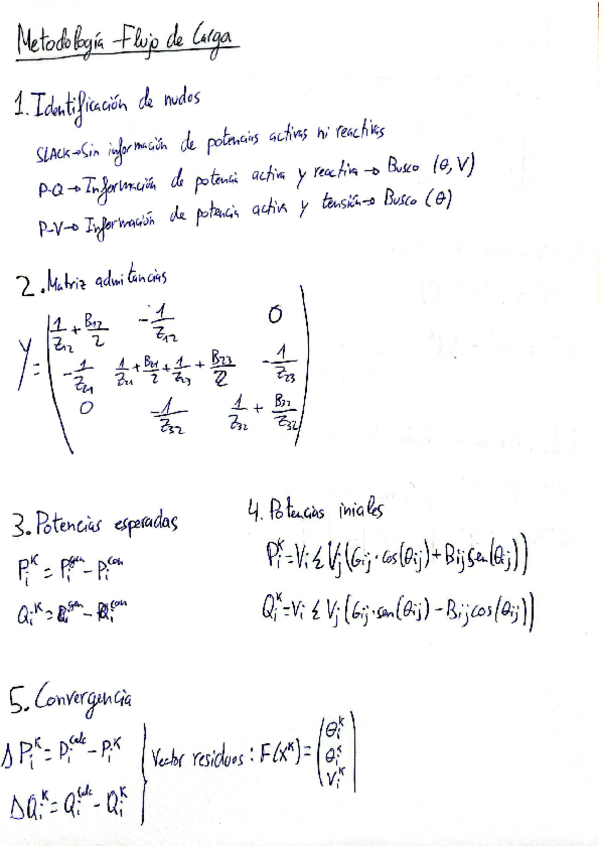 Metodología - Flujo de Carga
1. Identificación de nudos
SLACK → Sin información de potencias activas ni reactivas
P-Q → Información de potencia activa y reactiva → Busco (θ, V)
P-V → Información de potencia activa y tensión → Busco (θ)
2. Matriz admitancias
Y = | 1/Z12 + B12/2   -1/Z12   0 |
| -1/Z21   1/Z21 + B21/2 + 1/Z23 + B23/2   -1/Z23 |
| 0   -1/Z32   1/Z32 + B32/Z32 |
3. Potencias esperadas
Pi^K = Pi^gen - Pi^con
Qi^K = Qi^gen - Qi^con
4. Potencias iniales
Pi^K = Vi Σ Vj (Gij · cos(θij) + Bij sen(θij))
Qi^K = Vi Σ Vj (Gij · sen(θij) - Bij cos(θij))
5. Convergencia
ΔPi^K = Pi^calc - Pi^K
ΔQi^K = Qi^calc - Qi^K
Vector residuos: F(x^K) = (θi^K
θi^K
Vi^K)